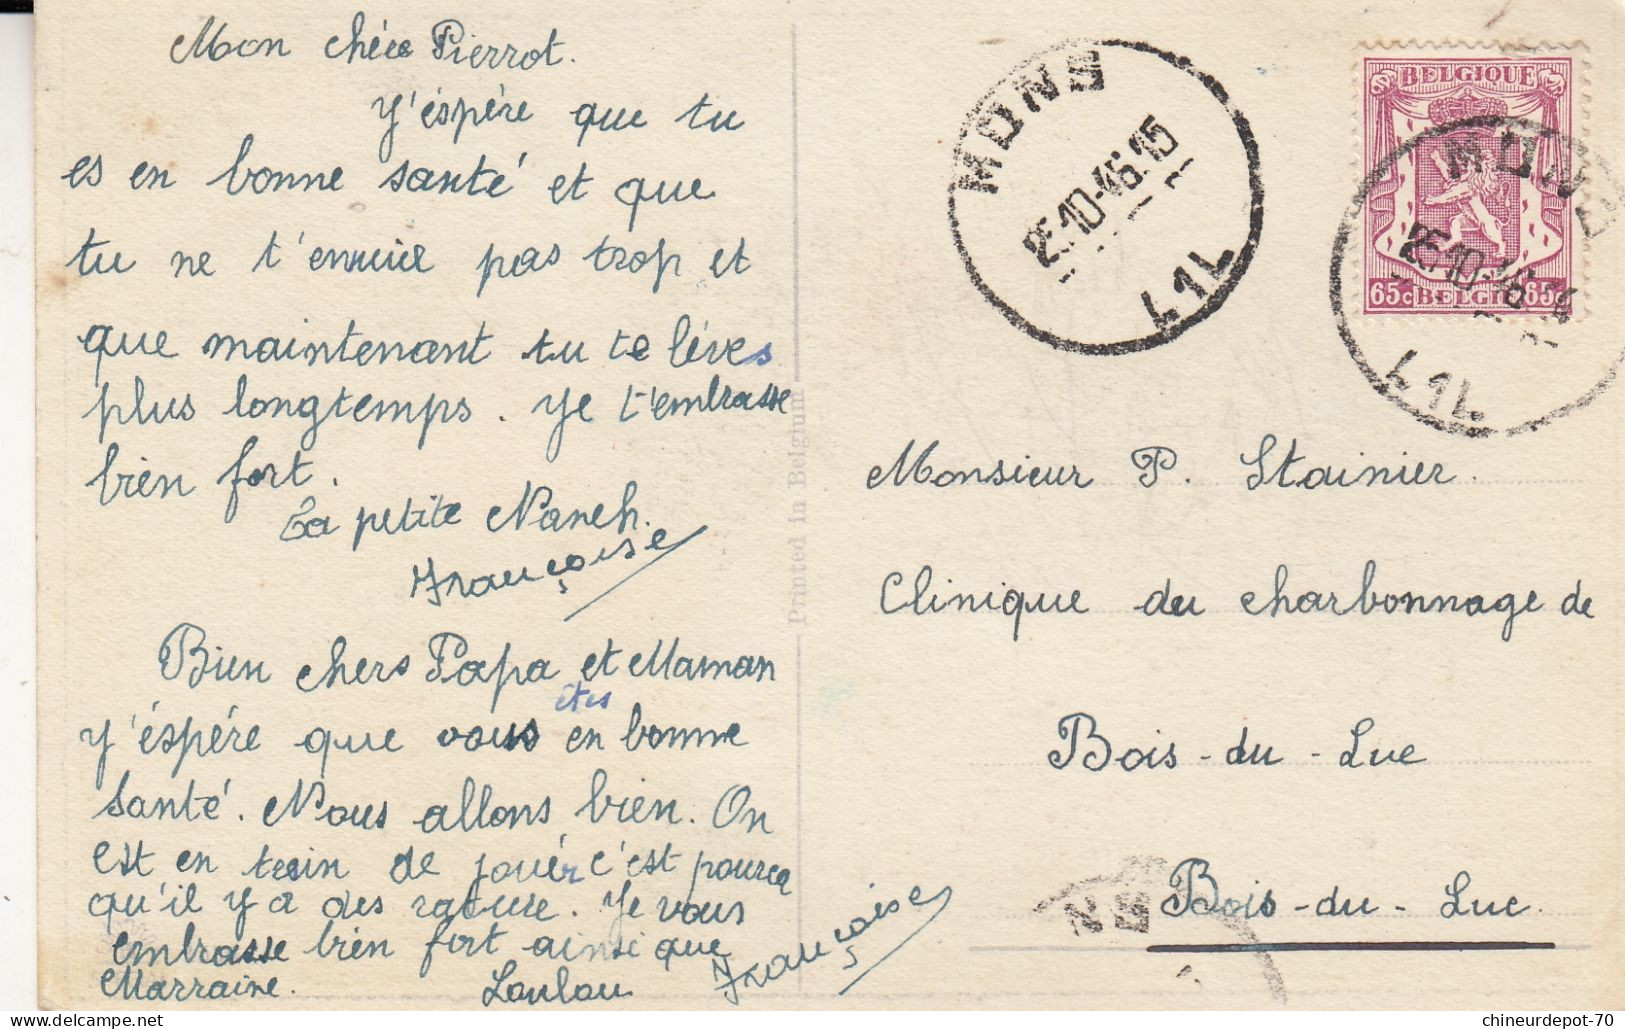 Mon chére Pierrot.
Y'éspére que tu
es en bonne santé et que
tu ne t'ennuie pas trop et
que maintenant tu te léves
plus longtemps. Ye t'embrasse
bien fort.
Ta petite Naneh.
Françoise
Bien chers Papa et Maman
êtes
y'éspére que vous en bonne
santé. Nous allons bien. On
est en train de jouér c'est pource
qu'il y a des rature. Ye vous
embrasse bien fort ainsi que
Marraine. Loulou Françoise
Printed in Belgium
MONS
25.10-46.15
L1L
BELGIQUE
65c BELGIË 65c
MONS
25.10-46
L1L
Monsieur P. Stainier.
Clinique du charbonnage de
Bois-du-Luc
Bois-du-Luc.
chineurdepot-70